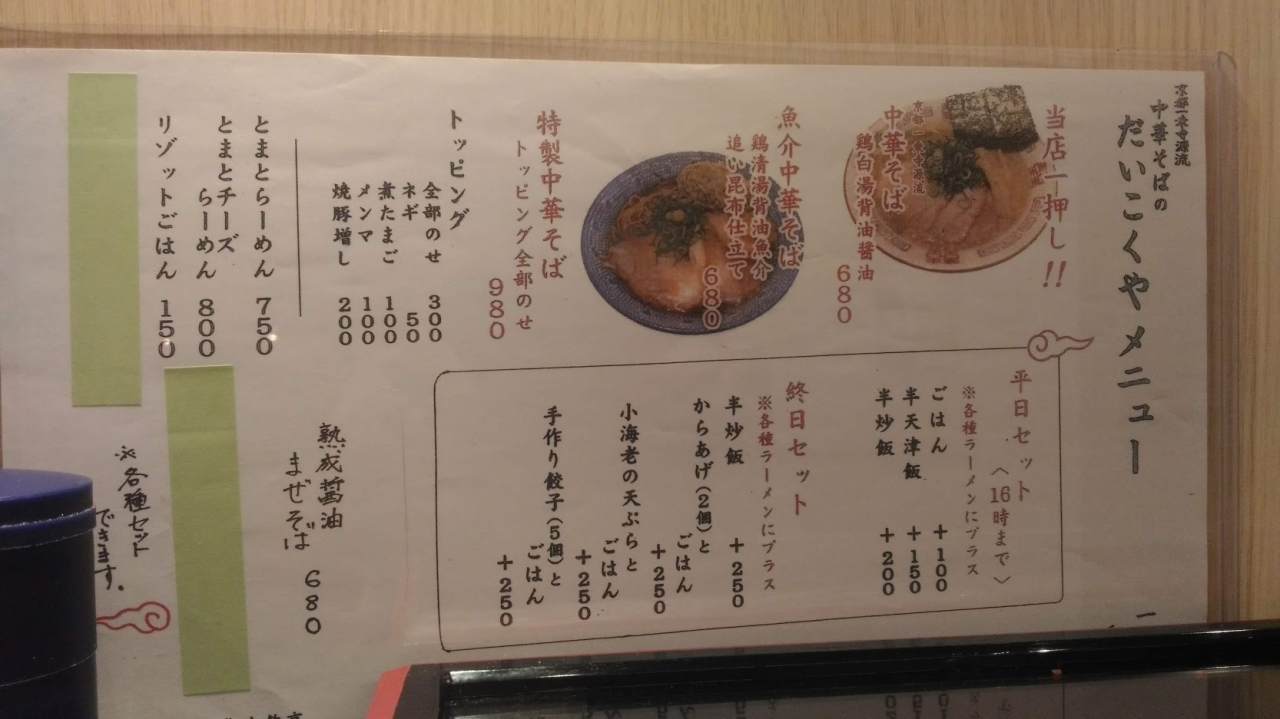 京都一乗寺源流
中華そばの
だいこくやメニュー
当店一押し!!
京都一乗寺源流
中華そば
鶏白湯背油醤油
680
魚介中華そば
鶏清湯背油魚介
追い昆布仕立て
680
特製中華そば
トッピング全部のせ
980
トッピング
全部のせ 300
ネギ 50
煮たまご 100
メンマ 100
焼豚増し 200
とまとらーめん 750
とまとチーズ
らーめん 800
リゾットごはん 150
平日セット
〈16時まで〉
※各種ラーメンにプラス
ごはん +100
半天津飯 +150
半炒飯 +200
終日セット
※各種ラーメンにプラス
半炒飯 +250
からあげ(2個)と
ごはん +250
小海老の天ぷらと
ごはん +250
手作り餃子(5個)と
ごはん +250
熟成醤油
まぜそば 680
※各種セット
できます。